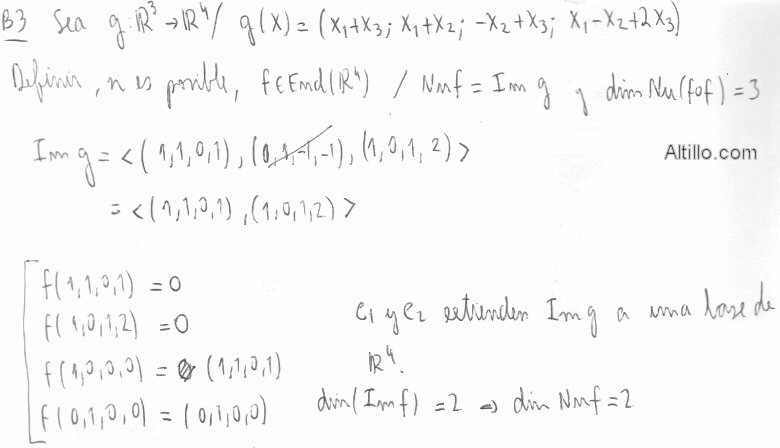 B3 Sea g: ℝ³→ℝ⁴/ g(x) = (x₁+x₃; x₁+x₂; -x₂+x₃; x₁-x₂+2x₃)
Definir, si es posible, f∈End(ℝ⁴) / Nuf = Im g y dim Nu(fof) = 3
Im g = <(1,1,0,1), (0,1,-1,-1), (1,0,1,2)>
Altillo.com
= <(1,1,0,1), (1,0,1,2)>
f(1,1,0,1) = 0
f(1,0,1,2) = 0
f(1,0,0,0) = (1,1,0,1)
f(0,1,0,0) = (0,1,0,0)
e₁ y e₂ extienden Im g a una base de
ℝ⁴.
dim(Imf) = 2 ⇒ dim Nuf = 2